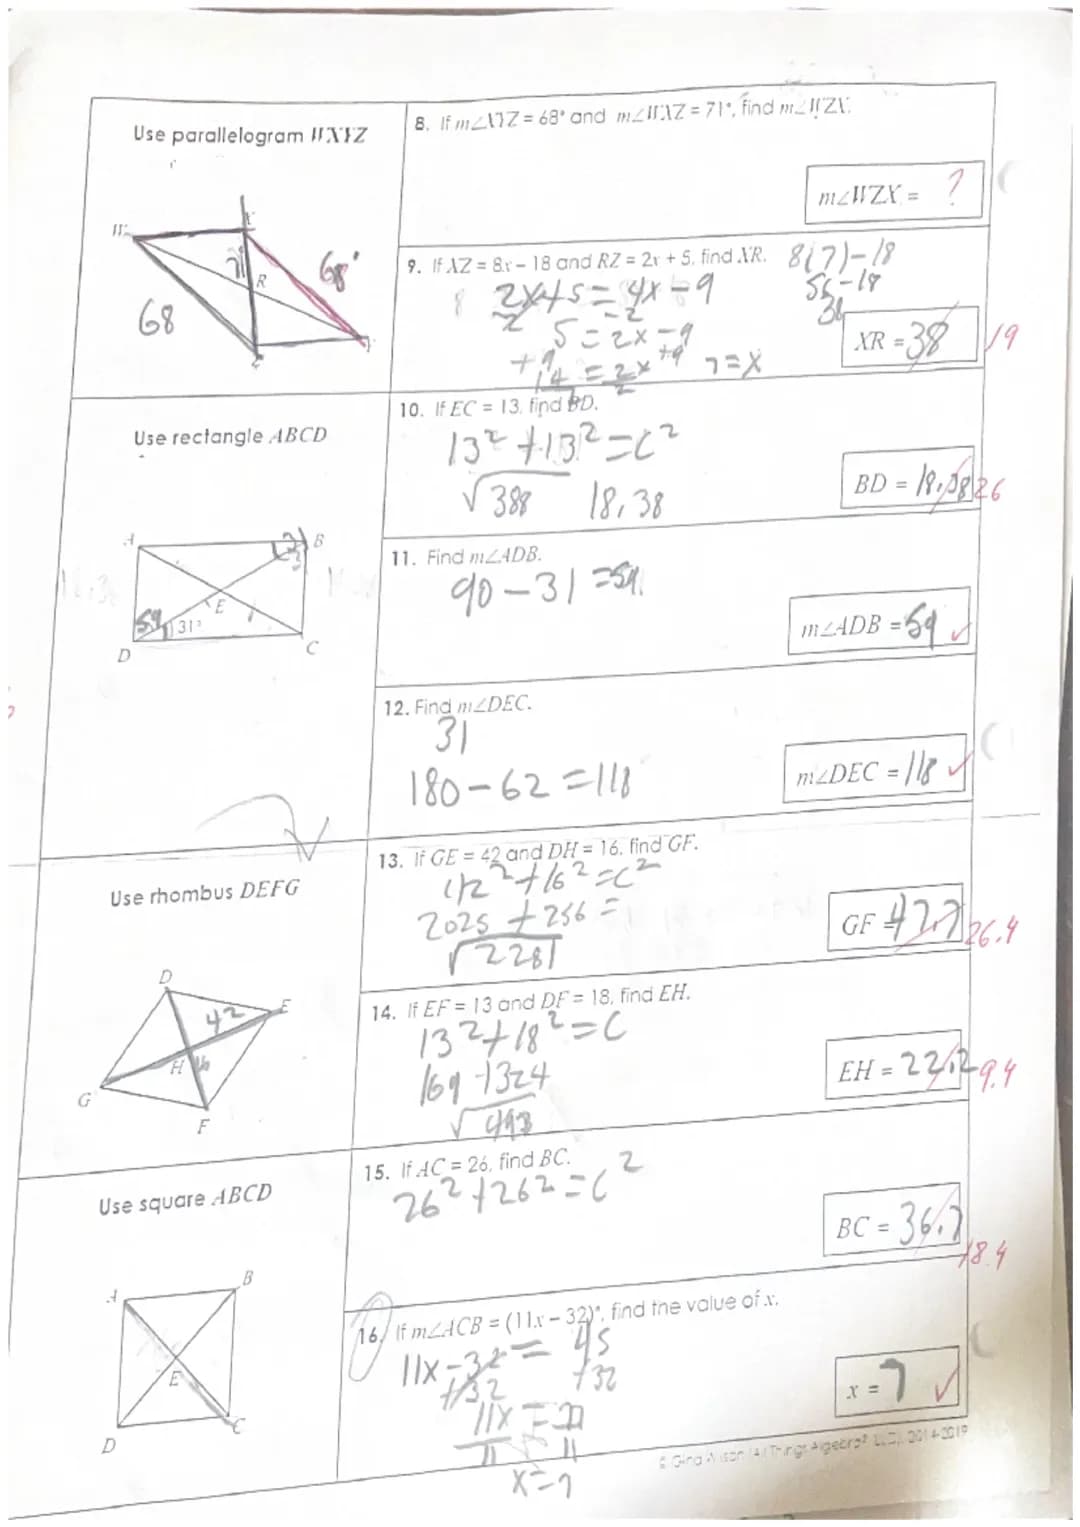 Use parallelogram WXYZ
8. If m∠XYZ = 68° and m∠WXZ = 71°, find m∠WZX.
m∠WZX = ?
W
X
71
68°
R
68
Z
Y
9. If XZ = 8x – 18 and RZ = 2x + 5, find XR.
8(7)-18
2x+5 = 4x-9
56-18
2 -2
38
5 = 2x-9
+9 +9
14 = 2x
2
7=x
XR = 38 19
Use rectangle ABCD
10. If EC = 13, find BD.
13² +13² = c²
√388 18,38
BD = 18.38 26
A
B
31
E
59 31°
D
C
11. Find m∠ADB.
90-31 =59
m∠ADB = 59 ✓
12. Find m∠DEC.
31
180-62 =118
m∠DEC = 118 ✓
Use rhombus DEFG
13. If GE = 42 and DH = 16, find GF.
42²+16² =c²
2025 +256 =
√2281
GF = 47.7 26.4
D
42
E
H 16
G
F
14. If EF = 13 and DF = 18, find EH.
13²+18² = C
169 +324
√493
EH = 22.2 9.4
Use square ABCD
15. If AC = 26, find BC.
26²+26² = c²
BC = 36.7 18.4
A
B
E
D
C
16. If m∠ACB = (11x – 32)°, find the value of x.
11x-32 = 45
+32 +32
11x = 77
11 11
x=7
x = 7 ✓
© Gina Wilson (All Things Algebra®, LLC), 2014-2019